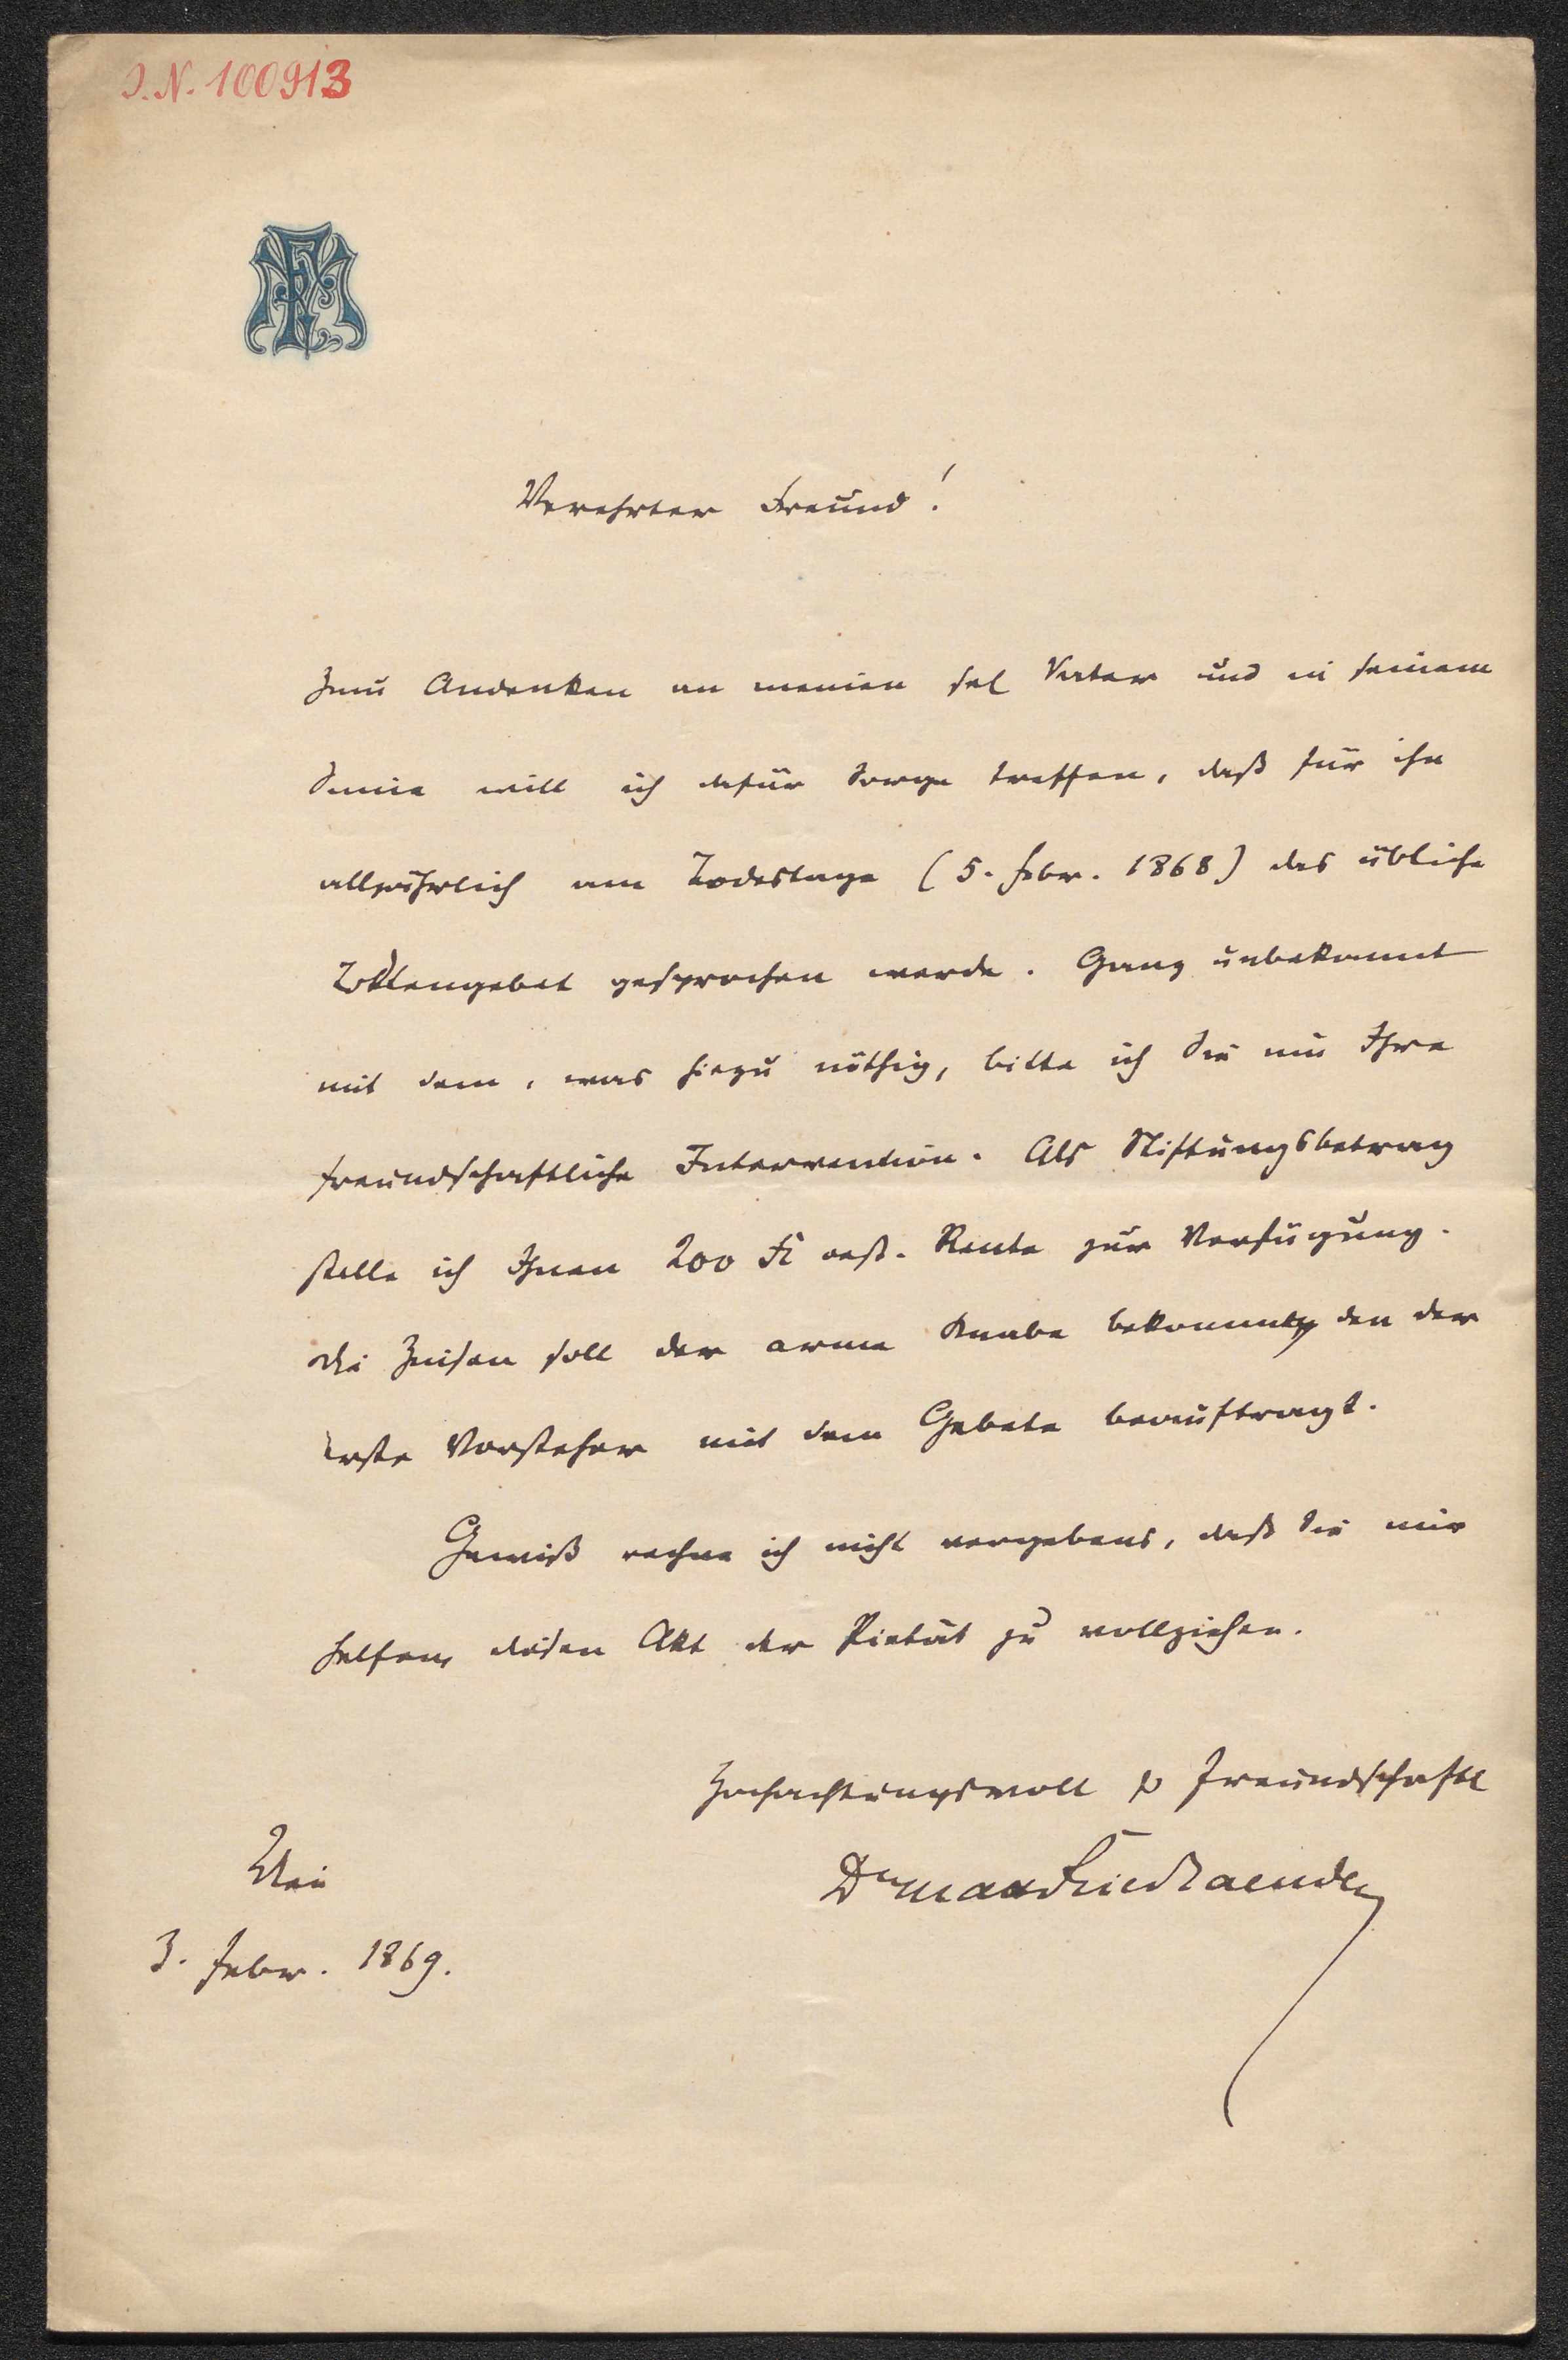 J.N. 100913
Verehrter Freund!
Zum Andenken an meinen sel Vater und in seinem
Sinne will ich dafür Sorge treffen, daß für ihn
alljährlich am Todestage (5. Febr. 1868) das übliche
Todtengebet gesprochen werde. Ganz unbekannt
mit dem, was hiezu nöthig, bitte ich Sie um Ihre
freundschaftliche Intervention. Als Stiftungsbetrag
stelle ich Ihnen 200 Fl oest. Rente zur Verfügung.
Die Zinsen soll der arme Knabe bekommen den der
erste Vorsteher mit dem Gebete beauftragt.
Gewiß rechne ich nicht vergebens, daß Sie mir
helfen, diesen Akt der Pietät zu vollziehen.
Hochachtungsvoll & freundschaftl
Dr Max Friedlaender
Wien
3. Febr. 1869.